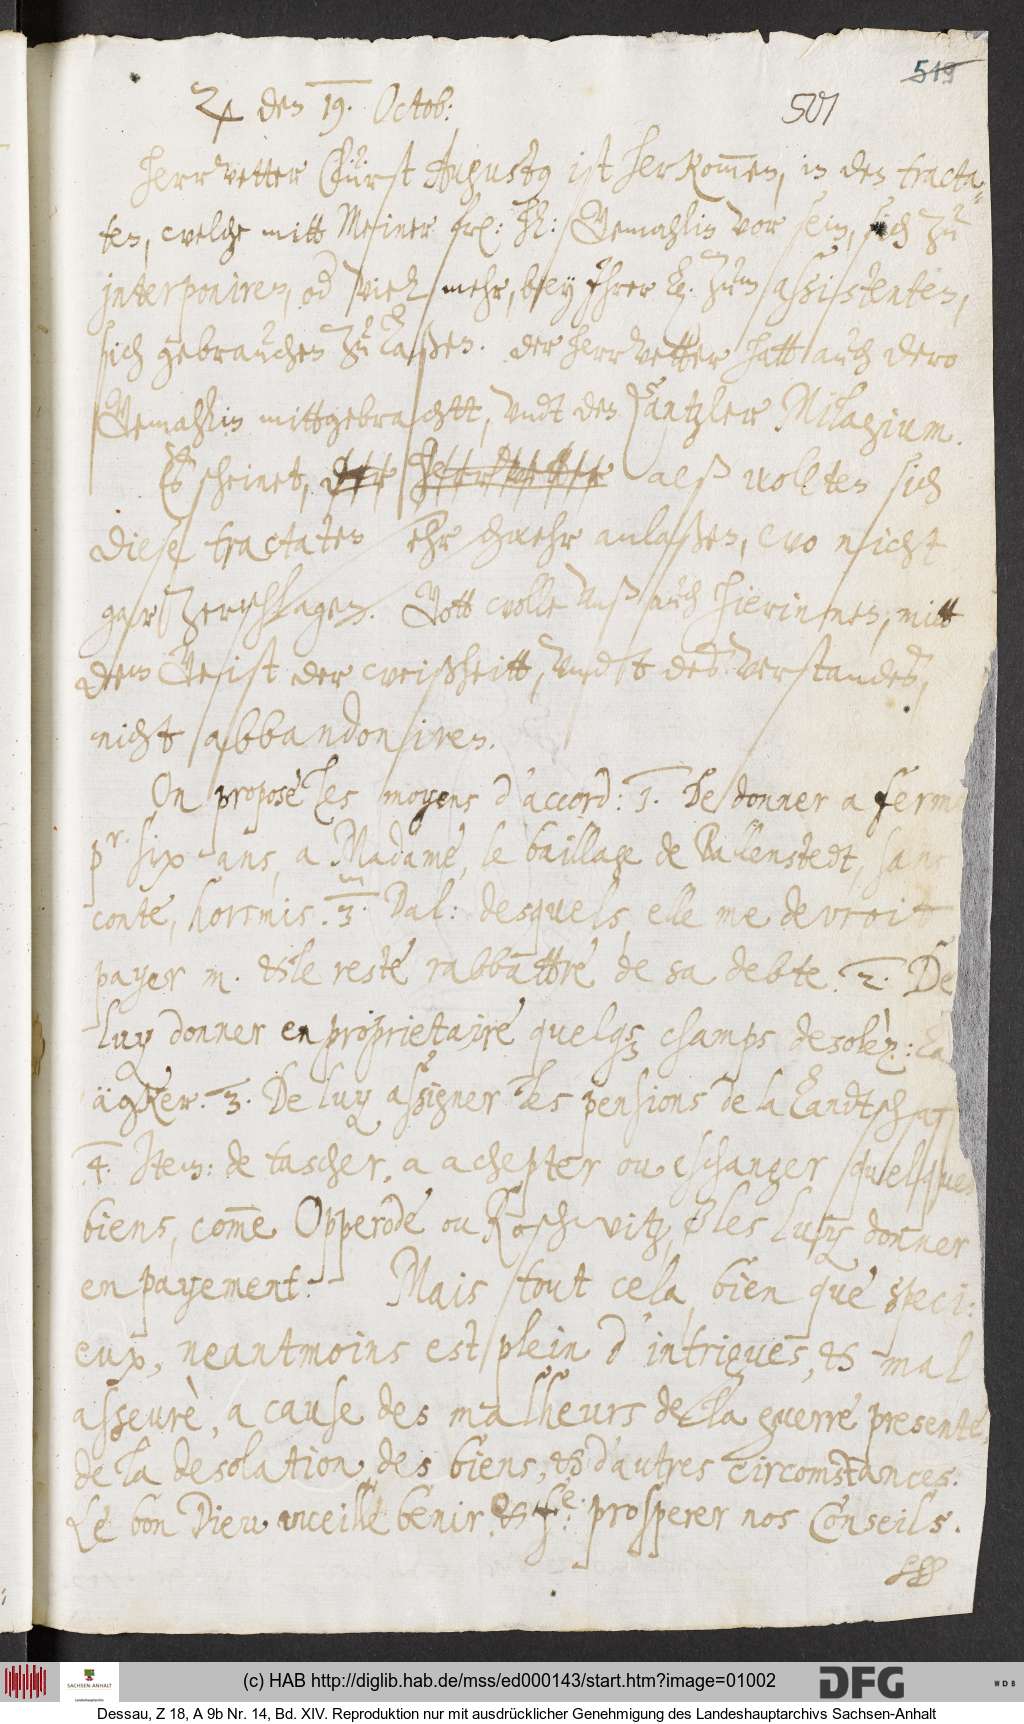 519
501
♃ den 19. Octob:
Herr vetter Fürst Augustus ist herkommen, in den tracta-
ten, welche mitt Meiner frl: hl: Gemahlin vor sein, sich zu
interponiren, od viel mehr, bey Ihrer L. zum assistenten,
sich gebrauchen zu laßen. der herr vetter hatt auch dero
Gemahlin mittgebrachtt, undt den Cantzler Milagium.
Es scheinet, der Herr vetter alß wollten sich
diese tractaten ehr schwehr anlaßen, wo nicht
gar zerschlagen. Gott wolle unß auch hierinnen, mitt
dem Geist der weißheitt, undt des verstandes,
nicht abbandoniren.
On proposè les moyens d'accord: 1. De donner a ferme
pr. six ans, a Madame, le baillage de Ballenstedt, sans
conte, horsmis 3m. Dal: desquels elle me devroit
payer m. & le reste rabbattre de sa debte. 2. De
luy donner en proprietaire quelqs champs desolèz:
ägker. 3. De luy assigner les pensions de la Landtschaft
4. Item: de tascher, a achepter ou eschanger quelques
biens, come Opperode ou Roschwitz, & les luy donner
en payement. Mais tout cela, bien que speci-
eux, neantmoins est plein d'intrigues, & mal
asseurè, a cause des malheurs de la guerre presente,
de la desolation des biens, & d'autres circomstances.
Le bon Dieu vueille benir, & fre. prosperer nos Conseils.
(c) HAB http://diglib.hab.de/mss/ed000143/start.htm?image=01002
SACHSEN-ANHALT
Landeshauptarchiv
DFG
WDB
Dessau, Z 18, A 9b Nr. 14, Bd. XIV. Reproduktion nur mit ausdrücklicher Genehmigung des Landeshauptarchivs Sachsen-Anhalt